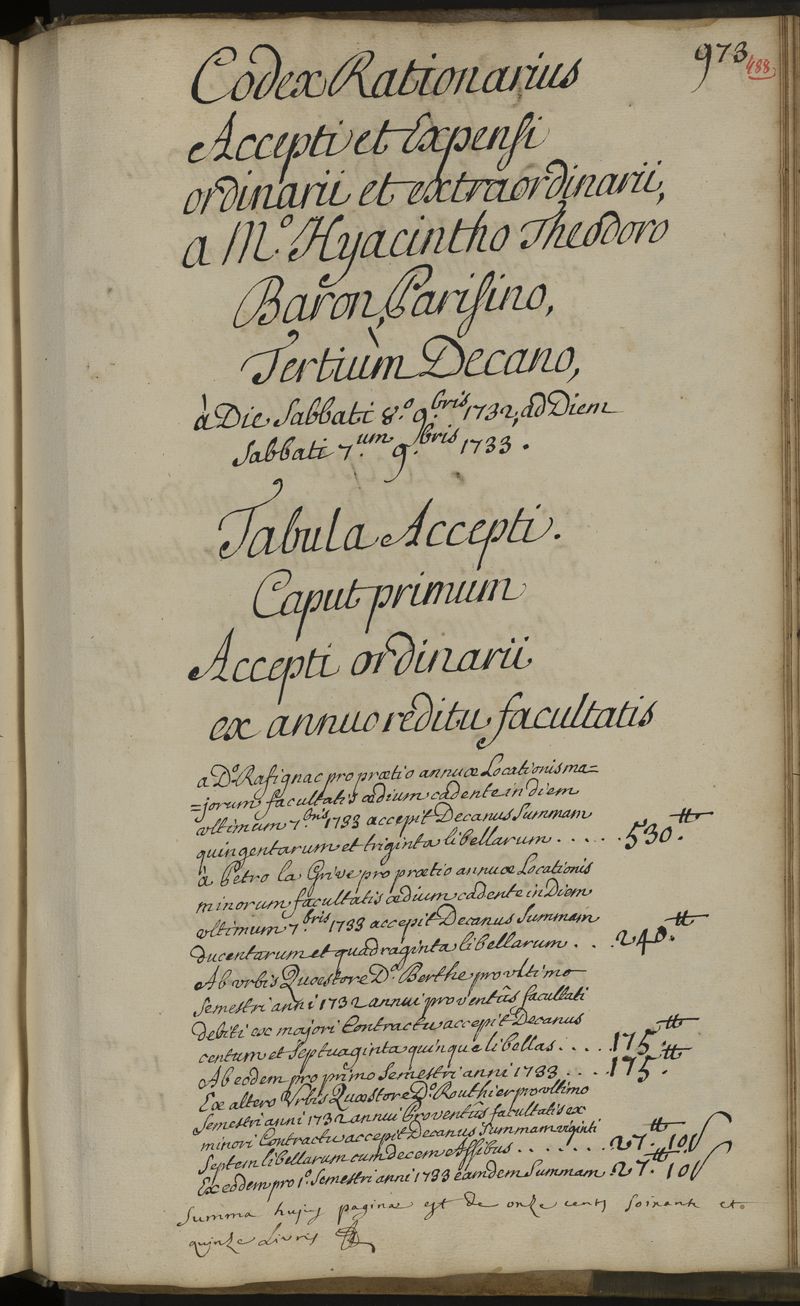 973
488
Codex Rationarius
Accepti et Expensi
ordinarii et extraordinarii,
a M.º Hyacintho Theodoro
Baron, Parisino,
Tertiùm Decano,
à Die Sabbati 8.º 9.bris 1732, ad Diem
Sabbati 7.um 9.bris 1733.
Tabula Accepti.
Caput primum
Accepti ordinarii
ex annuo reditu facultatis
a D.º Rasignac pro prætio annuæ Locationis ma=
=jorum facultatis ædium cadente in diem
ultimum 7.bris 1733 accepit Decanus Summam
quingentarum et triginta libellarum . . . . . 530.tt
à Petro la Grive pro prætio annuæ Locationis
minorum facultatis ædium cadente in Diem
ultimum 7.bris 1733 accepit Decanus Summam
Ducentarum et quadraginta libellarum . . . 240.tt
Ab urbis Quæstore D.º Berthe pro ultimo
Semestri anni 1732 annui proventûs facultati
debiti ex majori Contractu accepit Decanus
centum et Septuaginta quinque libellas . . . . 175.tt
Ab eodem pro primo Semestri anni 1733 . . . . 175.tt
Ex altero Urbis Quæstore D.º Routhier pro ultimo
Semestri anni 1732 annui Proventûs facultatis ex
minori Contractu accepit Decanus Summam viginti
Septem libellarum cum decem Assibus . . . . . . . 27.tt 10ſ
Ex eodem pro 1.º Semestri anni 1733 eamdem Summam . 27.tt 10ſ
Summa hujus paginæ est de onze cents soixante et
quinze Livres